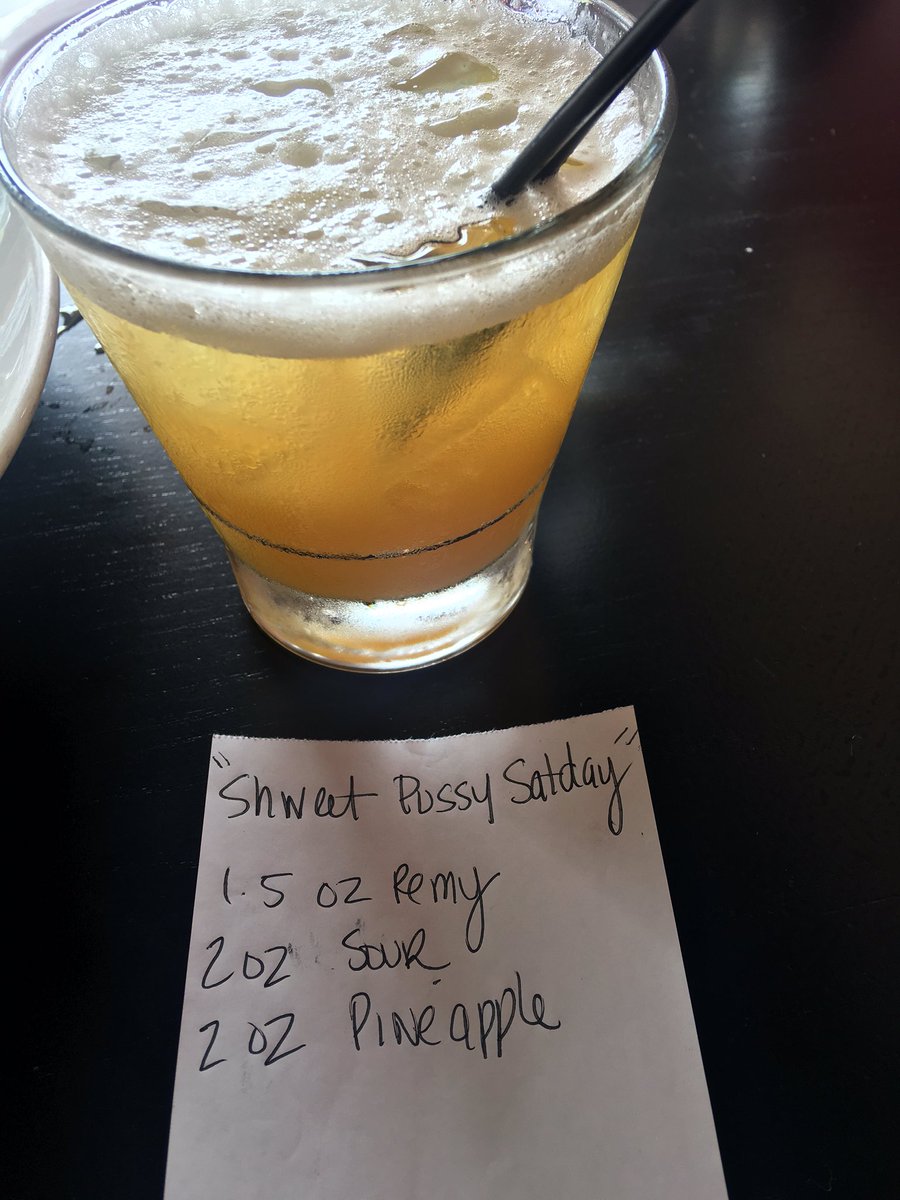 "Shweet Pussy Satday"
1.5 oz Remy
2 oz Sour
2 oz Pineapple